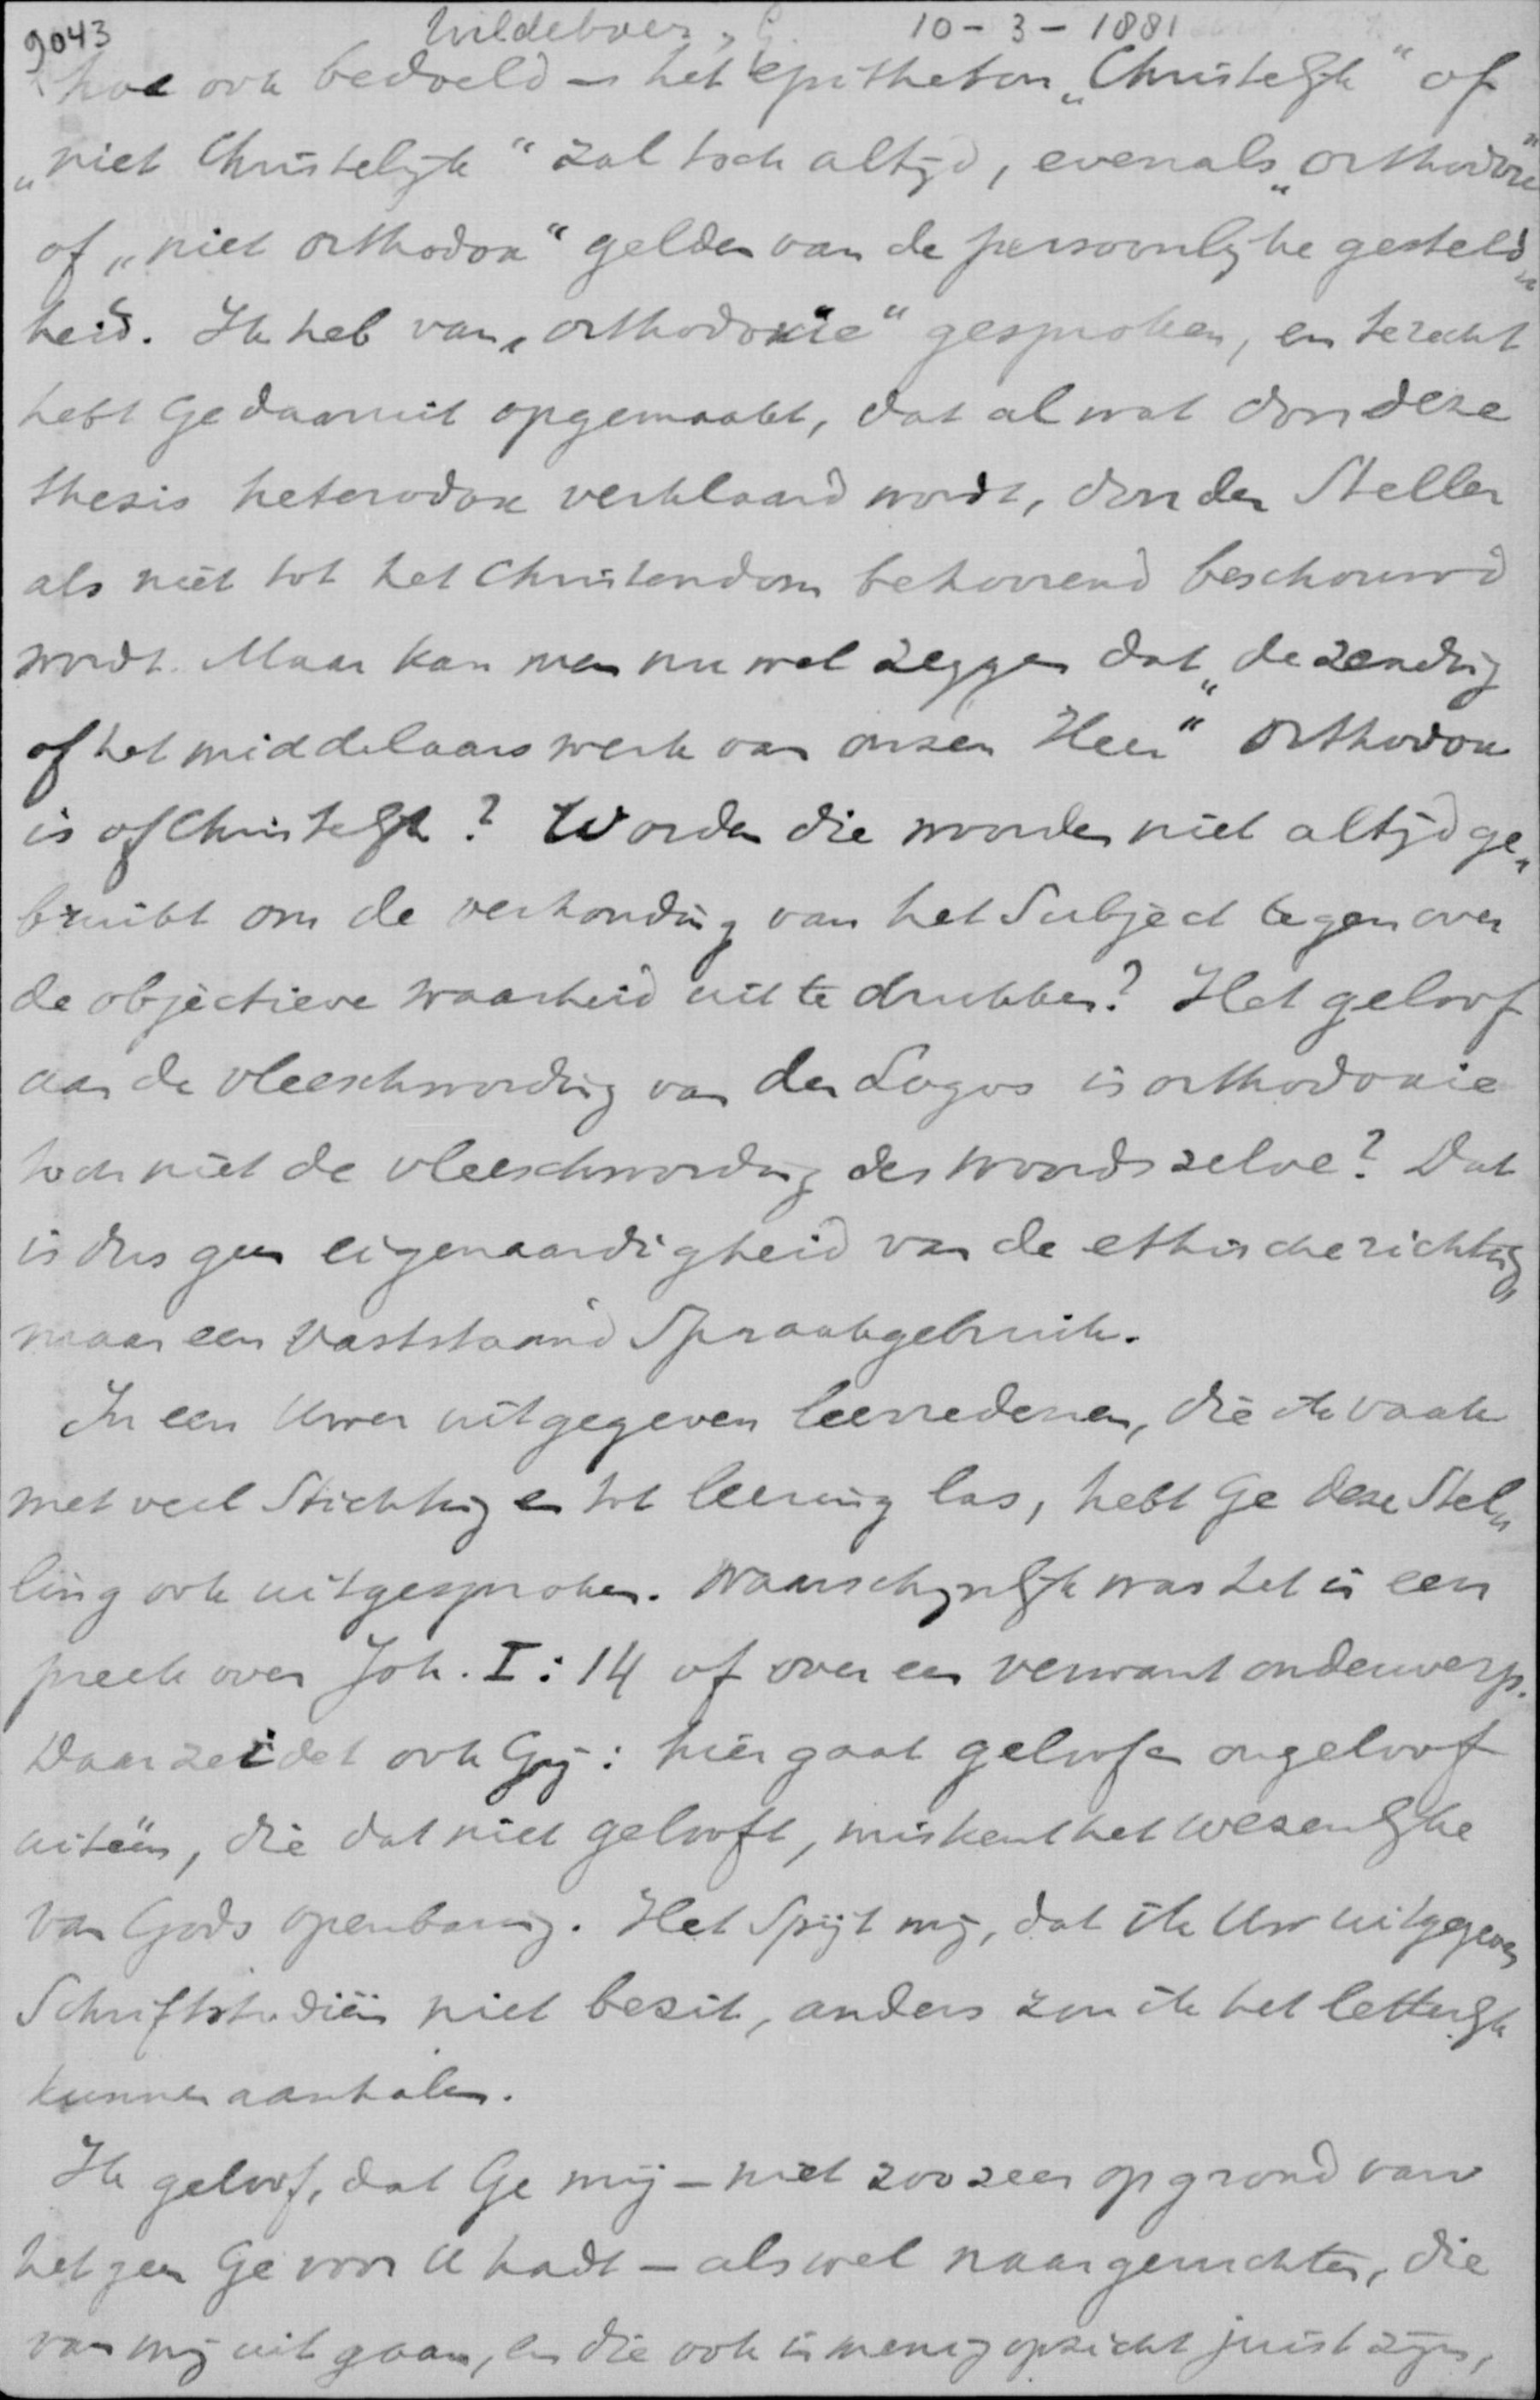 9043 Wildeboer, G. 10-3-1881
hoe ook bedoeld – het epitheton „Christelijk" of
„niet Christelijk" zal toch altijd, evenals „orthodox"
of „niet orthodox" gelden van de persoonlijke gesteld„
heid. Ik heb van „orthodoxie" gesproken, en terecht
hebt Ge daaruit opgemaakt, dat al wat door deze
thesis heterodox verklaard wordt, door den Steller
als niet tot het Christendom behoorend beschouwd
wordt. Maar kan men nu wel zeggen dat „de zending
of het middelaarswerk van onzen Heer" orthodox
is of Christelijk? Worden die woorden niet altijd ge„
bruikt om de verhouding van het Subject tegenover
de objectieve waarheid uit te drukken? Het geloof
aan de vleeschwording van den Logos is orthodoxie
toch niet de vleeschwording des Woords zelve? Dat
is dus geen eigenaardigheid van de ethische richting,
maar een vaststaand Spraakgebruik.
In een Uwer uitgegeven leerredenen, die ik vaak
met veel Stichting en tot leering las, hebt Ge deze Stel„
ling ook uitgesproken. Waarschijnlijk was het in een
preek over Joh. I: 14 of over een verwant onderwerp.
Daar zeidet ook Gij: hier gaat geloof en ongeloof
uitéén, die dat niet gelooft, miskent het wezenlijke
van Gods openbaring. Het Spijt mij, dat ik Uw uitgegeven
Schriftstudiën niet bezit, anders zou ik het letterlijk
kunnen aanhalen.
Ik geloof, dat Ge mij – niet zoo zeer op grond van
hetgeen Ge voor U hadt – als wel naar geruchten, die
van mij uitgaan, en die ook in menig opzicht juist zijn,